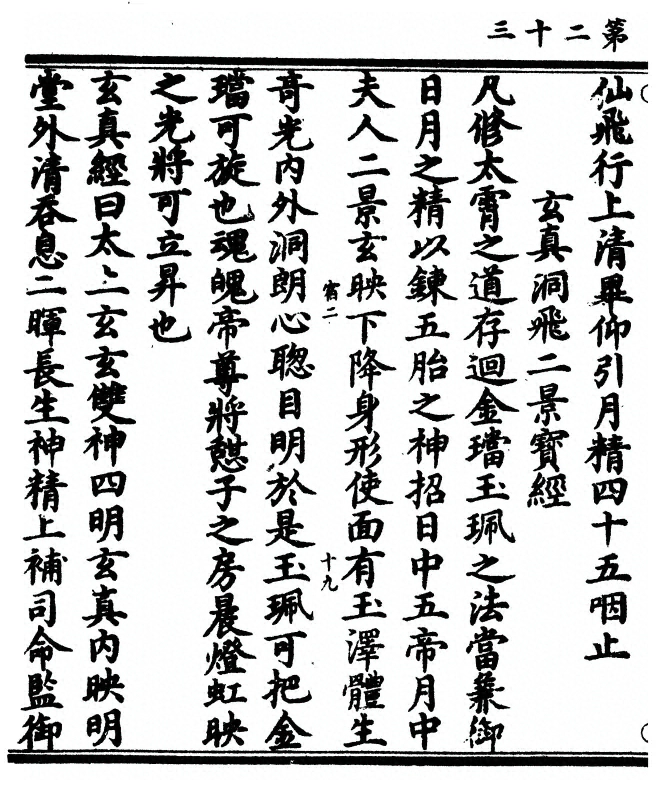 第二十三
仙飛行上清畢仰引月精四十五咽止
玄真洞飛二景寶經
凡修太霄之道存迴金璫玉珮之法當兼御
日月之精以鍊五胎之神招日中五帝月中
夫人二景玄映下降身形使面有玉澤體生
宿二
十九
奇光內外洞朗心聰目明於是玉珮可把金
璫可旋也魂魄帝尊將憇子之房晨燈虹映
之光將可立昇也
玄真經曰太上玄玄雙神四明玄真內映明
堂外清吞息二暉長生神精上補司命監御